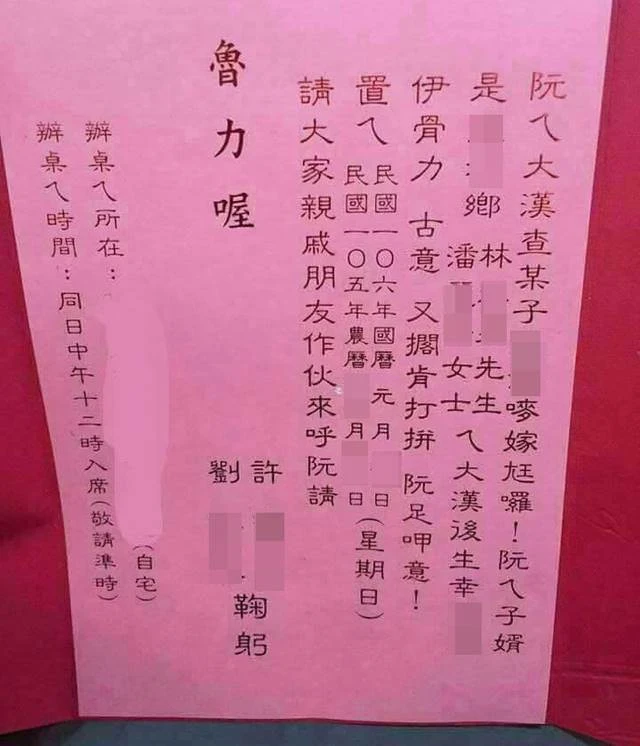 阮ㄟ大漢查某子 嘜嫁尪囉！阮ㄟ子婿
是 鄉 林 先生
潘 女士 ㄟ大漢後生幸
伊骨力 古意 又擱肯打拚 阮足呷意！
置ㄟ 民國一〇六年國曆 元月 日
民國一〇五年農曆 月 日（星期日）
請大家親戚朋友作伙來呼阮請
魯力喔
許
劉
鞠躬
辦桌ㄟ所在： （自宅）
辦桌ㄟ時間：同日中午十二時入席（敬請準時）